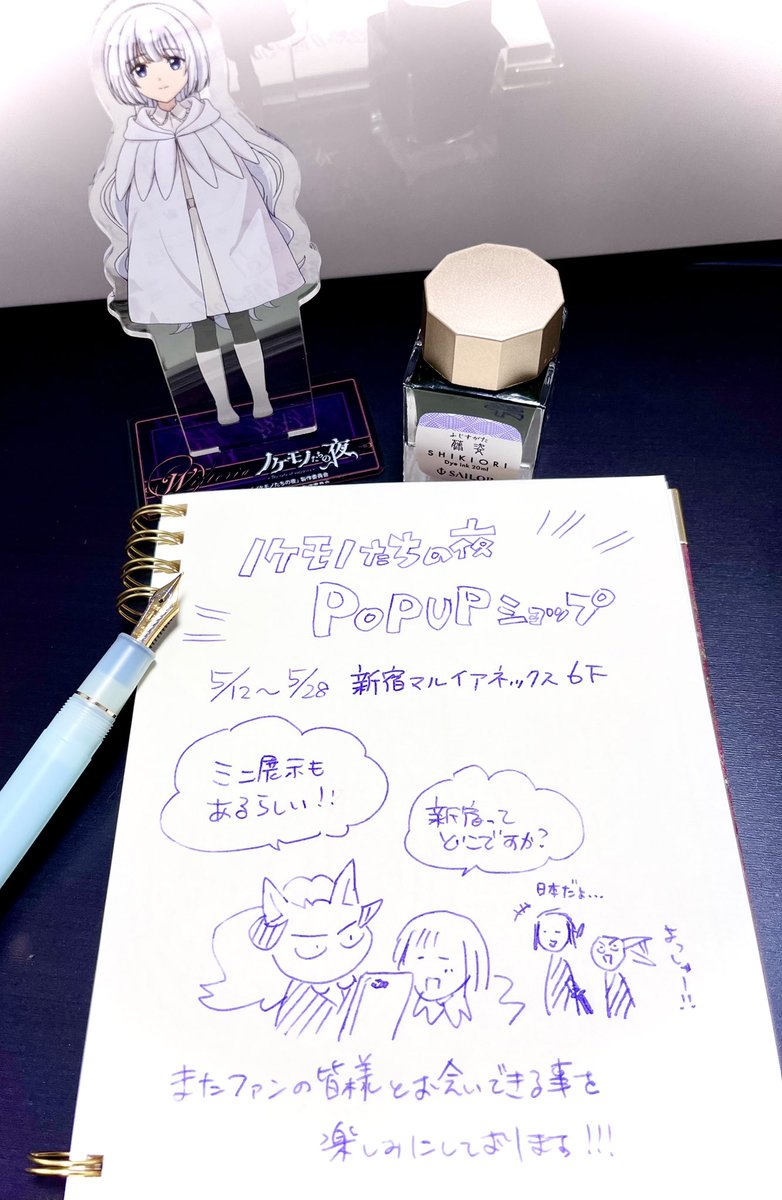 Wisteria ノケモノたちの夜
「ノケモノたちの夜」製作委員会
ふじすがた
藤姿
SHIKIORI
Dye ink 20ml
SAILOR
ノケモノたちの夜
POPUPショップ
5/12～5/28 新宿マルイアネックス6F
ミニ展示も
あるらしい!!
新宿って
どこですか?
日本だよ...
よっしゃー!!
またファンの皆様とお会いできる事を
楽しみにしております!!!